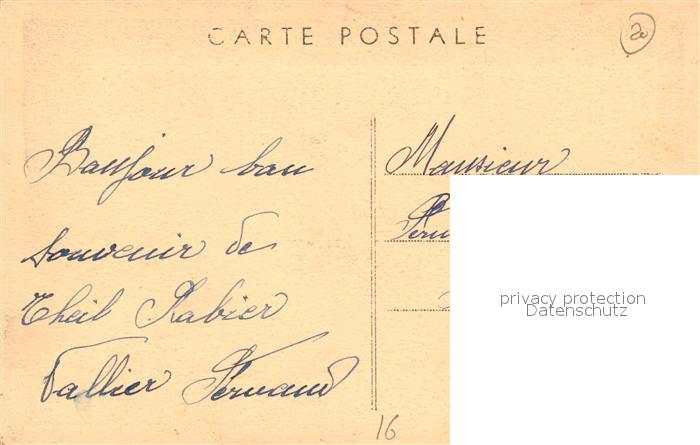 CARTE POSTALE
20
Bonjour bon
souvenir de
Theil Rabier
Vallier Fernand
Monsieur
privacy protection
Datenschutz
16